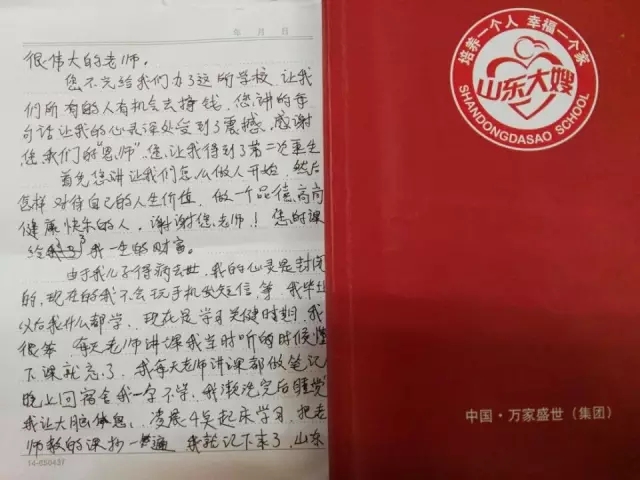 年 月 日
很伟大的老师。
您不完给我们办了这所学校,让我
们所有的人有机会去挣钱。您讲的每
句话让我的心灵深处受到了震撼,感谢
您我们的“恩师”。您让我得到了第二次重生
首先您讲让我们怎么做人开始,然后
怎样对待自己的人生价值,做一个品德高尚
健康快乐的人,谢谢您老师!您的课
给了我一生的财富。
由于我儿子得病去世,我的心灵是封闭
的,现在的我不会玩手机发短信,等我毕业
以后我什么都学,现在是学习关健时期,我
很笨,每天老师讲课我当时听的时候懂
下课就忘了,我每天老师讲课都做笔记
晚上回宿舍我一字不等,我漱洗完后睡觉
我让大脑休息,凌晨4点起床学习,把老
师教的课抄一遍,我就记下来了,山东
14-050437
培养一个人 幸福一个家
山东大嫂
SHANDONGDASAO SCHOOL
中国·万家盛世(集团)